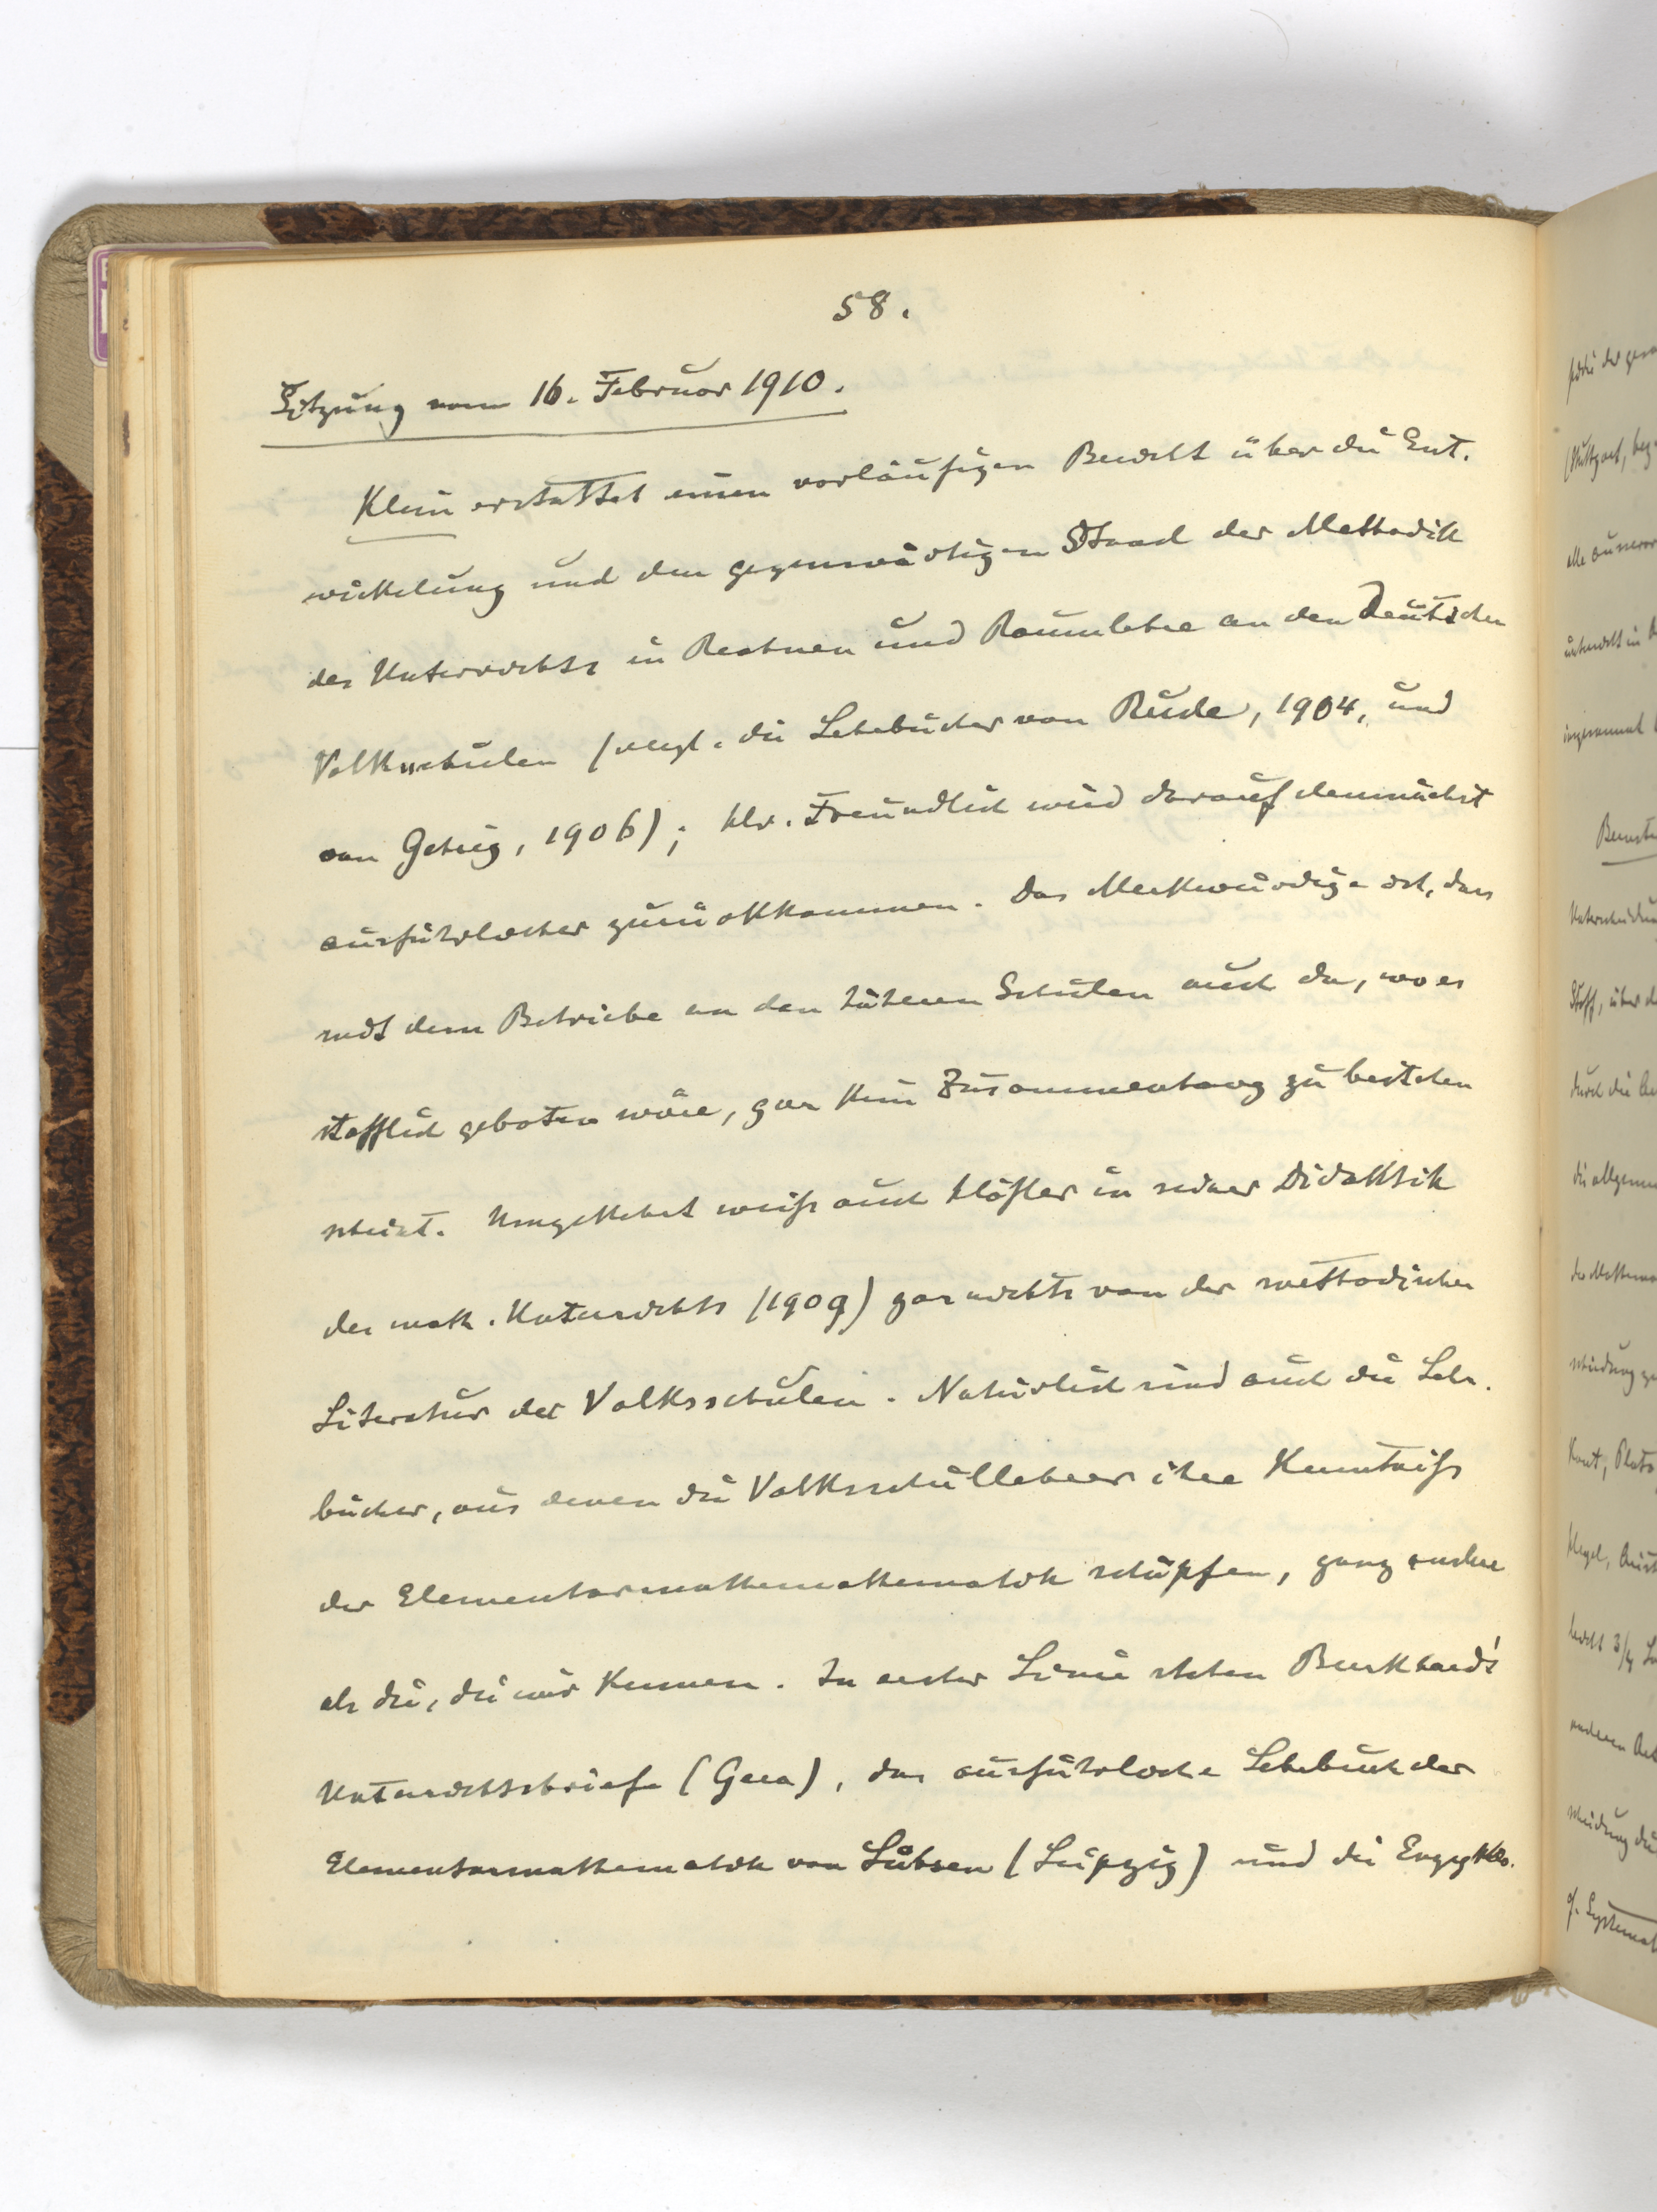 58.
Sitzung vom 16. Februar 1910.
Klein erstattet einen vorläufigen Bericht über die Ent-
wickelung und den gegenwärtigen Stand der Methodik
des Unterrichts in Rechnen und Raumlehre an den Deutschen
Volksschulen (vergl. die Lehrbücher von Rude, 1904, und
von Gehrig, 1906); Hr. Freundlich wird darauf demnächst
ausführlicher zurückkommen. Das Merkwürdige ist, dass
mit dem Betriebe an den höheren Schulen auch da, wo es
stofflich geboten wäre, gar kein Zusammenhang zu bestehen
scheint. Umgekehrt weiß auch Höfler in seiner Didaktik
des math. Unterrichts (1909) gar nichts von der methodischen
Literatur der Volksschulen. Natürlich sind auch die Lehr-
bücher, aus denen die Volksschullehrer ihre Kenntniß
der Elementarmathemathematik schöpfen, ganz andere
als die, die wir kennen. In erster Linie stehen Burkhards'
Unterrichtsbriefe (Gera), das ausführliche Lehrbuch der
Elementarmathematik von Lübsen (Leipzig) und die Enzyklo-
Kant, Plato